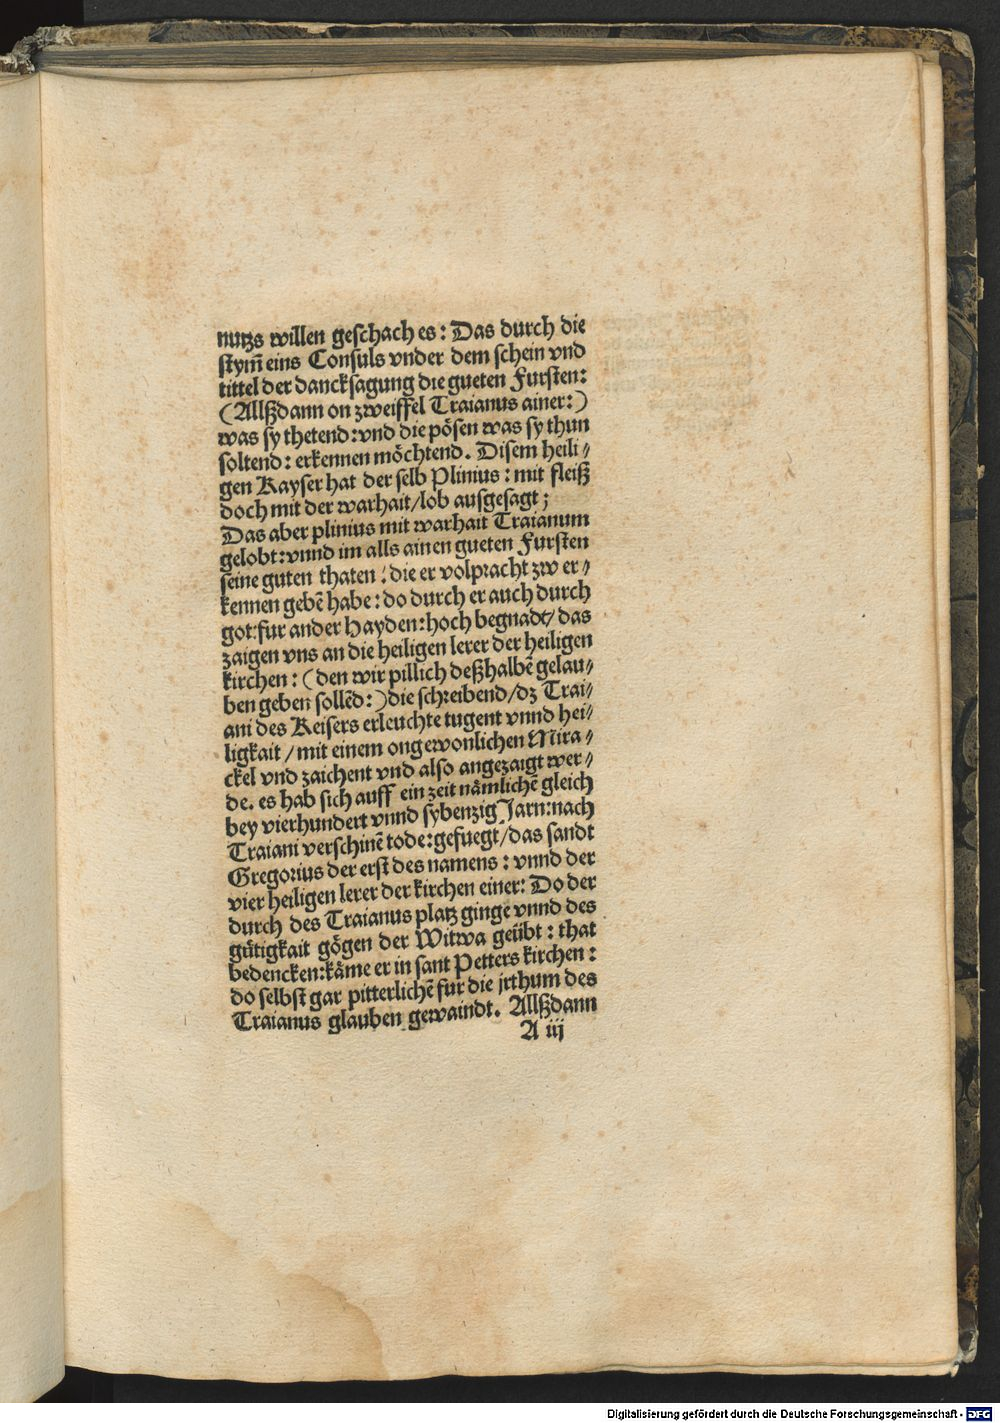 nutzs willen geschach es: Das durch die
stym̄ eins Consuls vnder dem schein vnd
tittel der dancksagung die gueten Fursten:
(Allßdann on zweiffel Traianus ainer:)
was sy thetend: vnd die pösen was sy thun
soltend: erkennen möchtend. Disem heili⸗
gen Kayser hat der selb Plinius: mit fleiß
doch mit der warhait/lob ausgesagt;
Das aber plinius mit warhait Traianum
gelobt: vnnd im alls ainen gueten Fursten
seine guten thaten: die er volpracht zw er⸗
kennen gebē habe: do durch er auch durch
got: fur ander Hayden: hoch begnadt/ das
zaigen vns an die heiligen lerer der heiligen
kirchen: (den wir pillich deßhalbē gelau⸗
ben geben sollēd:) die schreibend/dz Trai⸗
ani des Keisers erleuchte tugent vnnd hei⸗
ligkait/ mit einem ongewonlichen Mira⸗
ckel vnd zaichent vnd also angezaigt wer⸗
de. es hab sich auff ein zeit nämlichē gleich
bey vierhundert vnnd sybenzig Jarn: nach
Traiani verschinē tode: gefuegt/das sandt
Gregorius der erst des namens: vnnd der
vier heiligen lerer der kirchen einer: Do der
durch des Traianus platz ginge vnnd des
gütigkait gögen der Witwa geübt: that
bedencken: käme er in sant Petters kirchen:
do selbst gar pitterlichē fur die jrthum des
Traianus glauben gewaindt. Allßdann
A iij
Digitalisierung gefördert durch die Deutsche Forschungsgemeinschaft - DFG